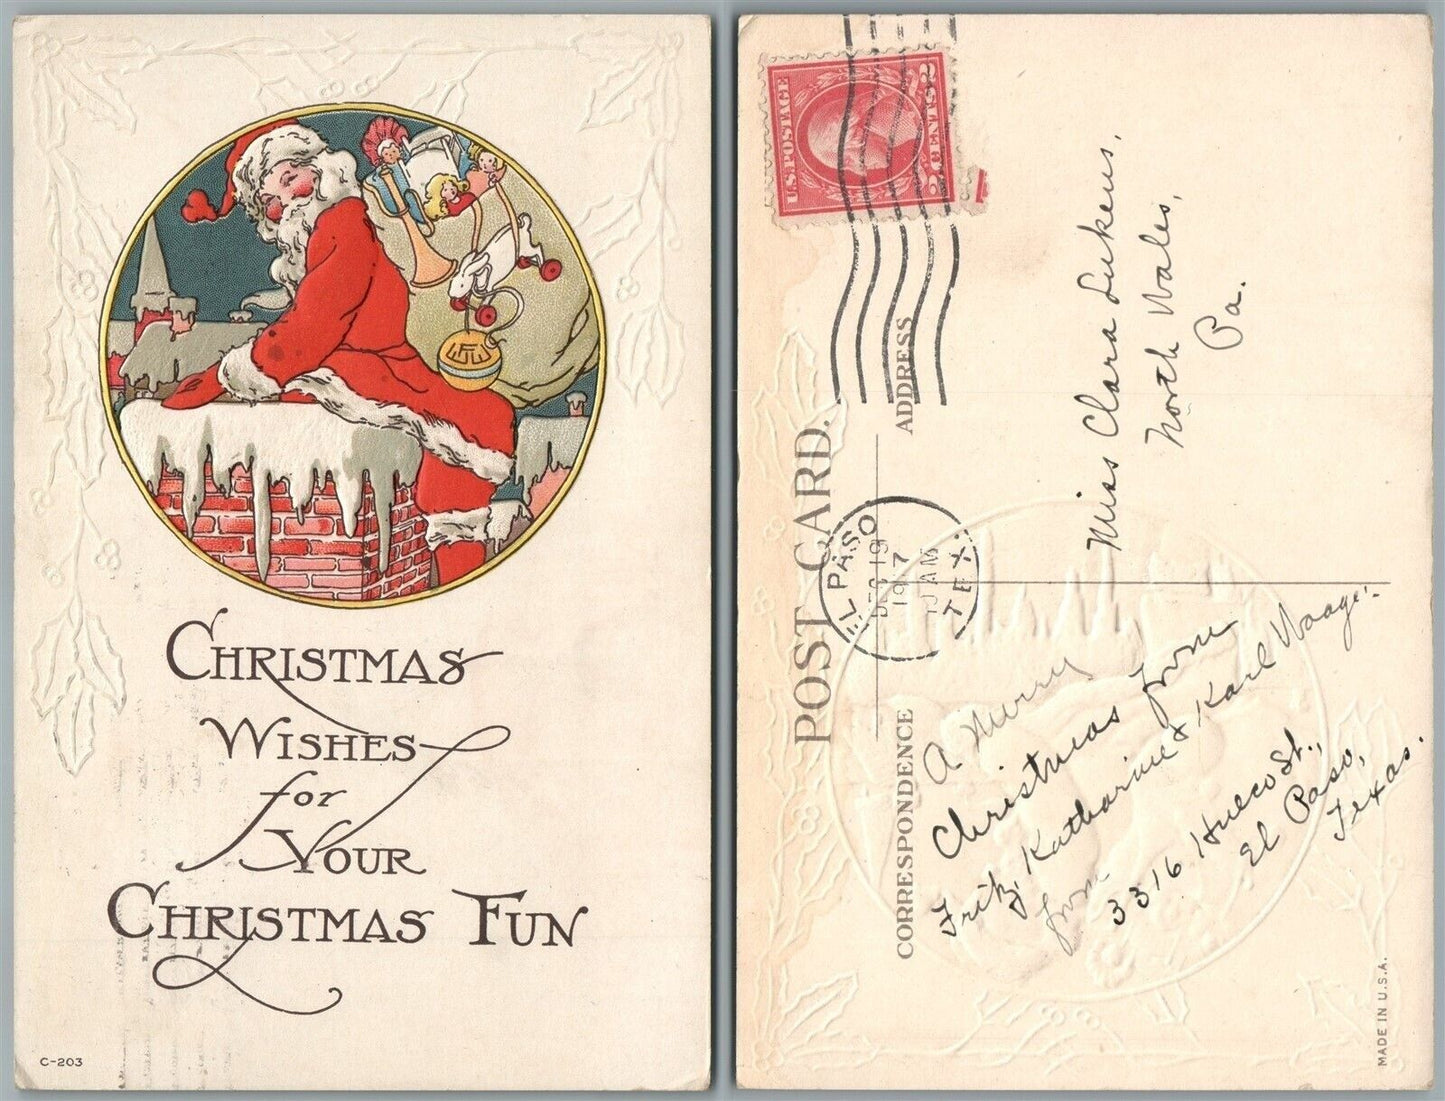 CHRISTMAS
WISHES
for
YOUR
CHRISTMAS FUN
C-203
U.S. POSTAGE
2 CENTS 2
POST CARD.
ADDRESS
CORRESPONDENCE
EL PASO
TEX.
DEC 19
1917
AM
Miss Clara Lukens,
North Wales,
Pa.
A Merry
Christmas from
Fritz, Katharine & Karl Waage.
from
3316 Hueco St.,
El Paso,
Texas.
MADE IN U.S.A.